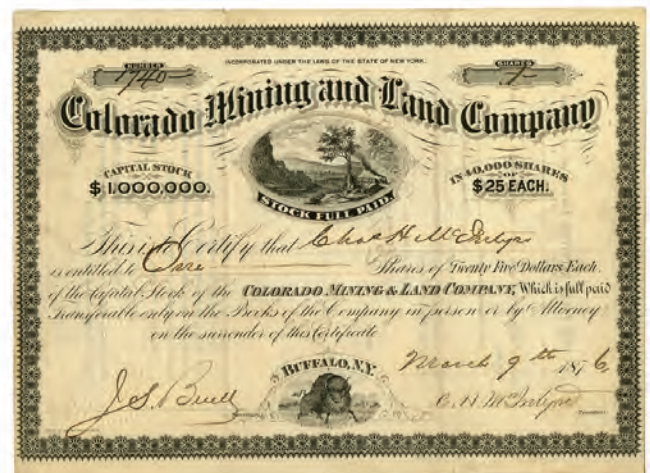 NUMBER
1740
INCORPORATED UNDER THE LAWS OF THE STATE OF NEW YORK.
SHARES
1
Colorado Mining and Land Company
CAPITAL STOCK
$1,000,000.
STOCK FULL PAID.
IN 40,000 SHARES
OF
$25 EACH.
This is to Certify that Chas H McIntyre
is entitled to One Shares of Twenty Five Dollars Each.
of the Capital Stock of the COLORADO MINING & LAND COMPANY, Which is full paid
Transferable only on the Books of the Company in person or by Attorney
on the surrender of this Certificate
BUFFALO, N.Y.
March 9th 1876.
J. S. Buell
C. H. McIntyre